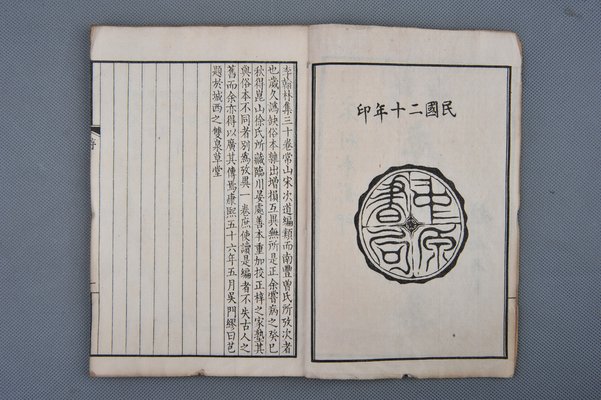 民國二十年印
中原書局
李翰林集三十卷常山宋次道編類而南豐曾氏所攷次者
也歲久譌缺俗本雜出增損互異無所是正余嘗病之癸巳
秋得崑山徐氏所藏臨川晏處善本重加校正梓之家塾其
與俗本不同者別為攷異一卷庶使讀是編者不失古人之
舊而余亦得以廣其傳焉康熙五十六年五月吳門繆曰芑
題於城西之雙泉草堂